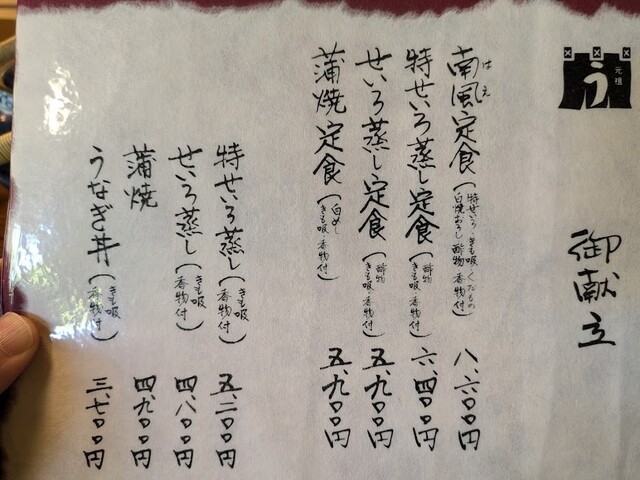 元祖
う
御献立
南風定食（特せいろ・きも吸・くだもの 八、六〇〇円
はえ
白焼おろし 酢物 香物付）
特せいろ蒸し定食（酢物 六、四〇〇円
きも吸・香物付）
せいろ蒸し定食（酢物 五、九〇〇円
きも吸・香物付）
蒲焼定食（白めし 五、九〇〇円
きも吸・香物付）
特せいろ蒸し（きも吸 五、二〇〇円
香物付）
せいろ蒸し（きも吸 四、八〇〇円
香物付）
蒲焼 四、九〇〇円
うなぎ丼（きも吸 三、七〇〇円
香物付）